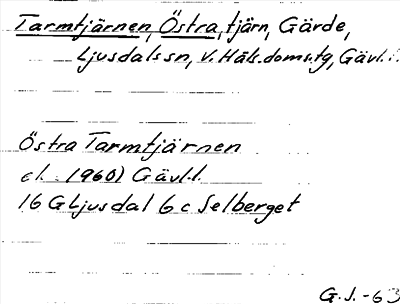 Tarmtjärnen, Östra, tjärn, Gärde,
Ljusdals sn, V. Häls. doms. tg, Gävl.
Östra Tarmtjärnen
el. 1960) Gävl.l.
16 G Ljusdal 6 c Selberget
G. J. -63